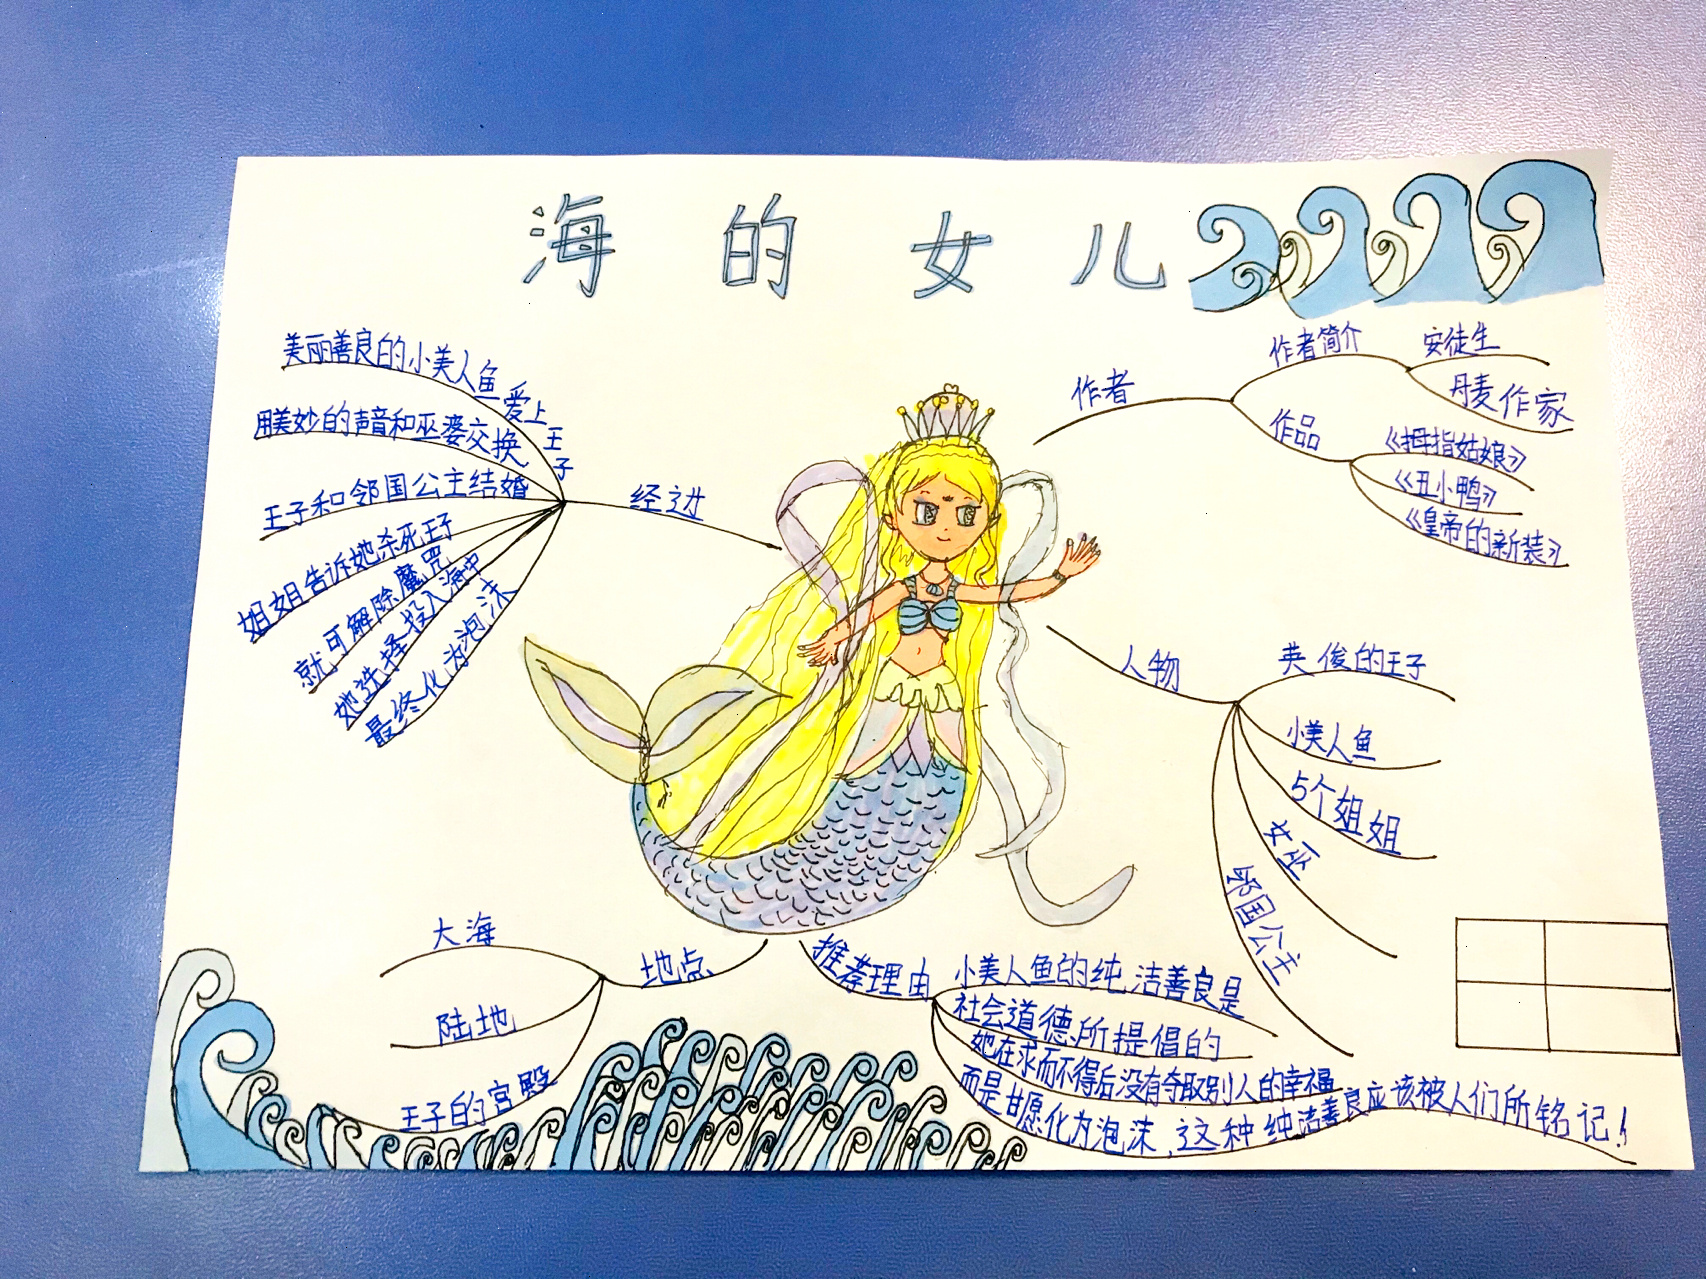 海的女儿
作者
作者简介
安徒生
丹麦作家
作品
《拇指姑娘》
《丑小鸭》
《皇帝的新装》
经过
美丽善良的小美人鱼爱上王子
用美妙的声音和巫婆交换
王子和邻国公主结婚
姐姐告诉她杀死王子
就可解除魔咒
她选择投入海中
最终化为泡沫
人物
英俊的王子
小美人鱼
5个姐姐
女巫
邻国公主
地点
大海
陆地
王子的宫殿
推荐理由
小美人鱼的纯洁善良是
社会道德所提倡的
她在求而不得后没有夺取别人的幸福
而是甘愿化为泡沫,这种纯洁善良应该被人们所铭记!